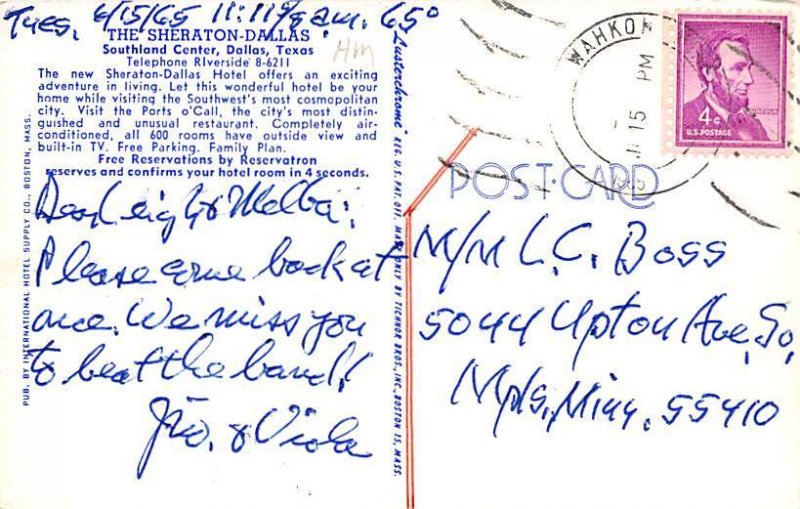 Tues. 6/15/65 11:11 a.m. 65°
THE SHERATON-DALLAS
Southland Center, Dallas, Texas
Telephone RIverside 8-6211
HM
The new Sheraton-Dallas Hotel offers an exciting
adventure in living. Let this wonderful hotel be your
home while visiting the Southwest's most cosmopolitan
city. Visit the Ports o'Call, the city's most distin-
guished and unusual restaurant. Completely air-
conditioned, all 600 rooms have outside view and
built-in TV. Free Parking. Family Plan.
Free Reservations by Reservatron
reserves and confirms your hotel room in 4 seconds.
Dear Leigh & Melba:
Please come back at
once. We miss you
to beat the band!
Jno. & Viola
PUB. BY INTERNATIONAL HOTEL SUPPLY CO., BOSTON, MASS.
"Lusterchrome" REG. U.S. PAT. OFF. MADE ONLY BY TICHNOR BROS., INC., BOSTON 15, MASS.
WAHKON
JU 15
PM
1965
4¢
LINCOLN
U.S. POSTAGE
POST CARD
M/M L. C. Boss
5044 Upton Ave, So,
Mpls., Minn. 55410